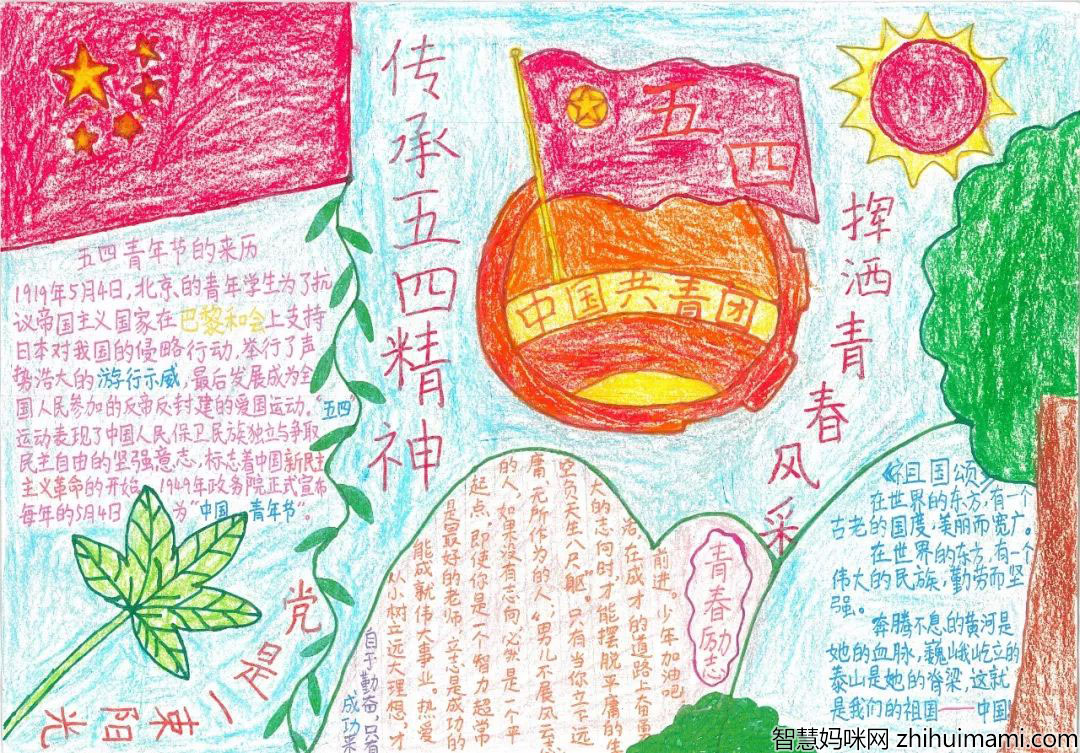 传承五四精神
五四
中国共青团
挥洒青春风采
五四青年节的来历
1919年5月4日,北京的青年学生为了抗
议帝国主义国家在巴黎和会上支持
日本对我国的侵略行动,举行了声
势浩大的游行示威,最后发展成为全
国人民参加的反帝反封建的爱国运动。“五四”
运动表现了中国人民保卫民族独立与争取
民主自由的坚强意志,标志着中国新民主
主义革命的开始。1949年政务院正式宣布
每年的5月4日
为“中国
青年节”。
党是一束阳光
青春励志
自于勤奋只有
成功来
从小树立远大理想,才
能成就伟大事业。热爱
是最好的老师,立志是成功的
起点,即使你是一个智力超常
的人,如果没有志向,必然是一个平
庸、无所作为的人“男儿不展风云志
空负天生八尺躯”。只有当你立下远
大的志向时才能摆脱平庸的生
活,在成才的道路上奋勇
前进。少年加油吧
《祖国颂》
在世界的东方,有一个
古老的国度,美丽而宽广。
在世界的东方,有一个
伟大的民族,勤劳而坚
强。
奔腾不息的黄河是
她的血脉,巍峨屹立的
泰山是她的脊梁,这就
是我们的祖国——中国!
智慧妈咪网 zhihuimami.com